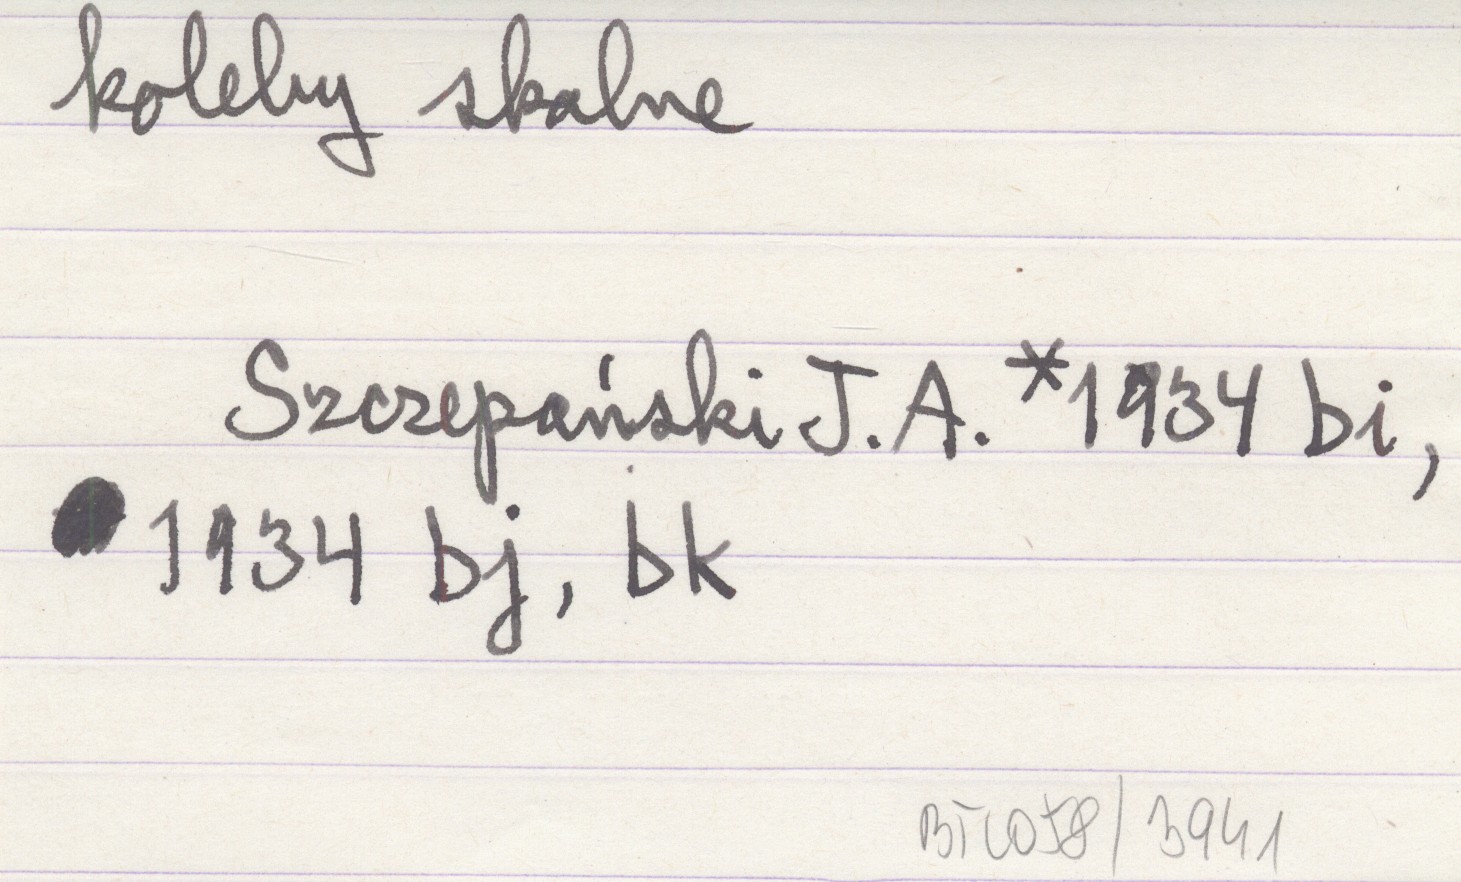 koleby skalne
Szczepański J.A. *1934 bi,
1934 bj, bk
BTL058/3941